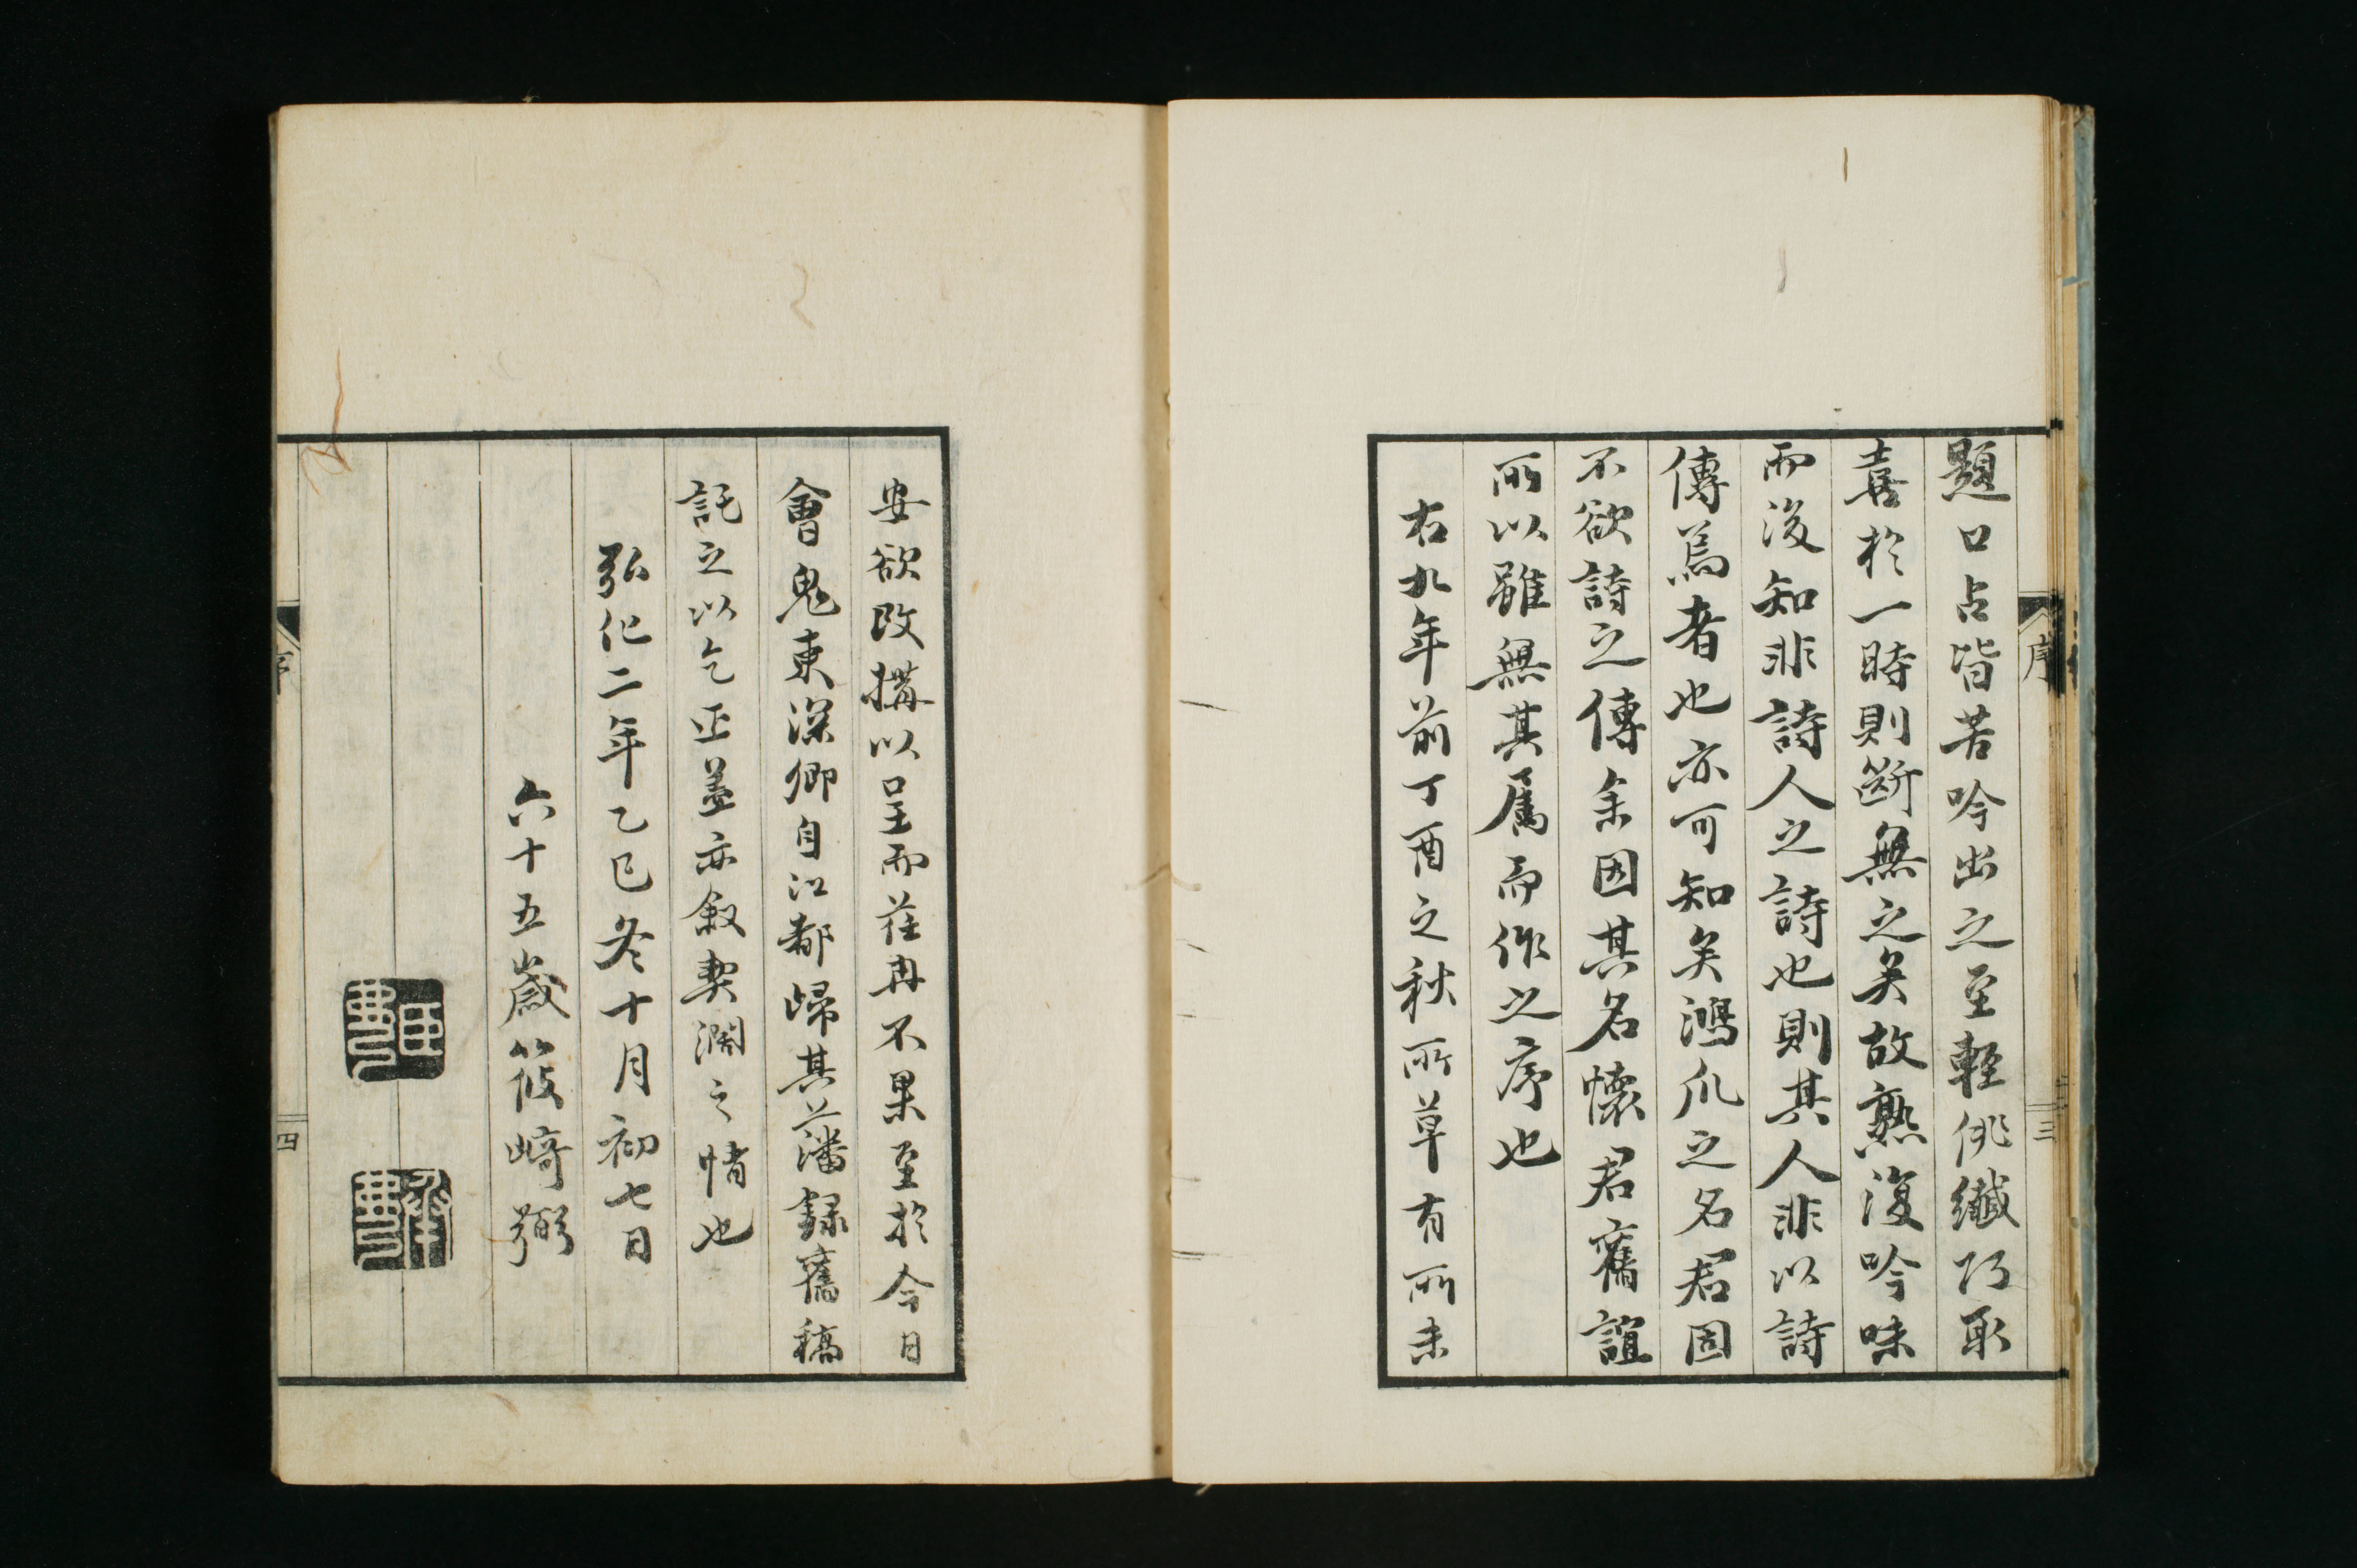 題口占皆苦吟出之至輕佻纖巧取
喜於一時則斷無之矣故熟復吟味
而後知非詩人之詩也則其人非以詩
傳焉者也亦可知矣鴻爪之名君固
不欲詩之傳余因其名懷君舊誼
所以雖無其屬而作之序也
右九年前丁酉之秋所草有所未
序
三
安欲改搆以呈而荏冉不果至於今日
會鬼東深卿自江都歸其藩錄舊稿
託之以乞正蓋亦敘契濶之情也
弘化二年乙巳冬十月初七日
六十五歲筱崎弼
序
四